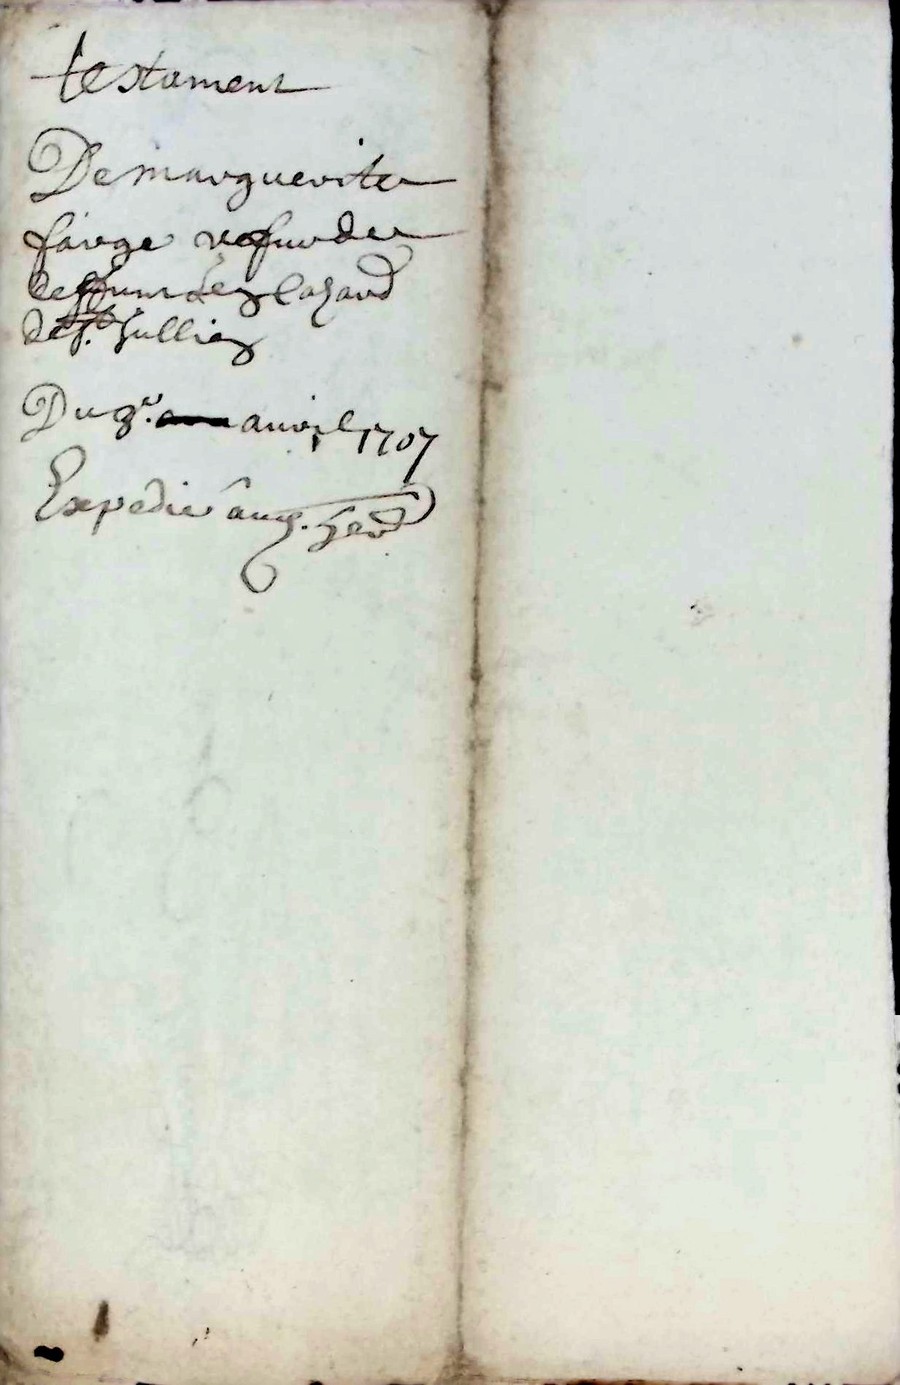 testament
De marguerite
farge vefue de
deffunt Legr Cahard
de St. Jullien
Du 3e. auvril 1707
Expedié aux. her